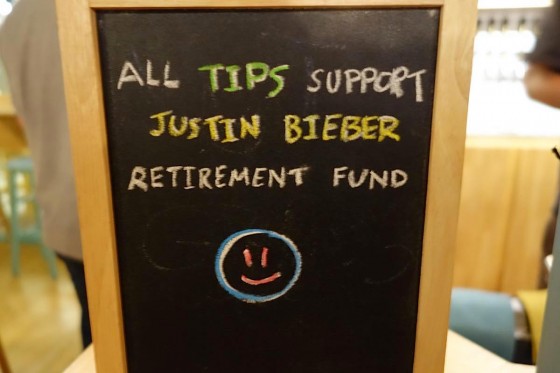 ALL TIPS SUPPORT
JUSTIN BIEBER
RETIREMENT FUND